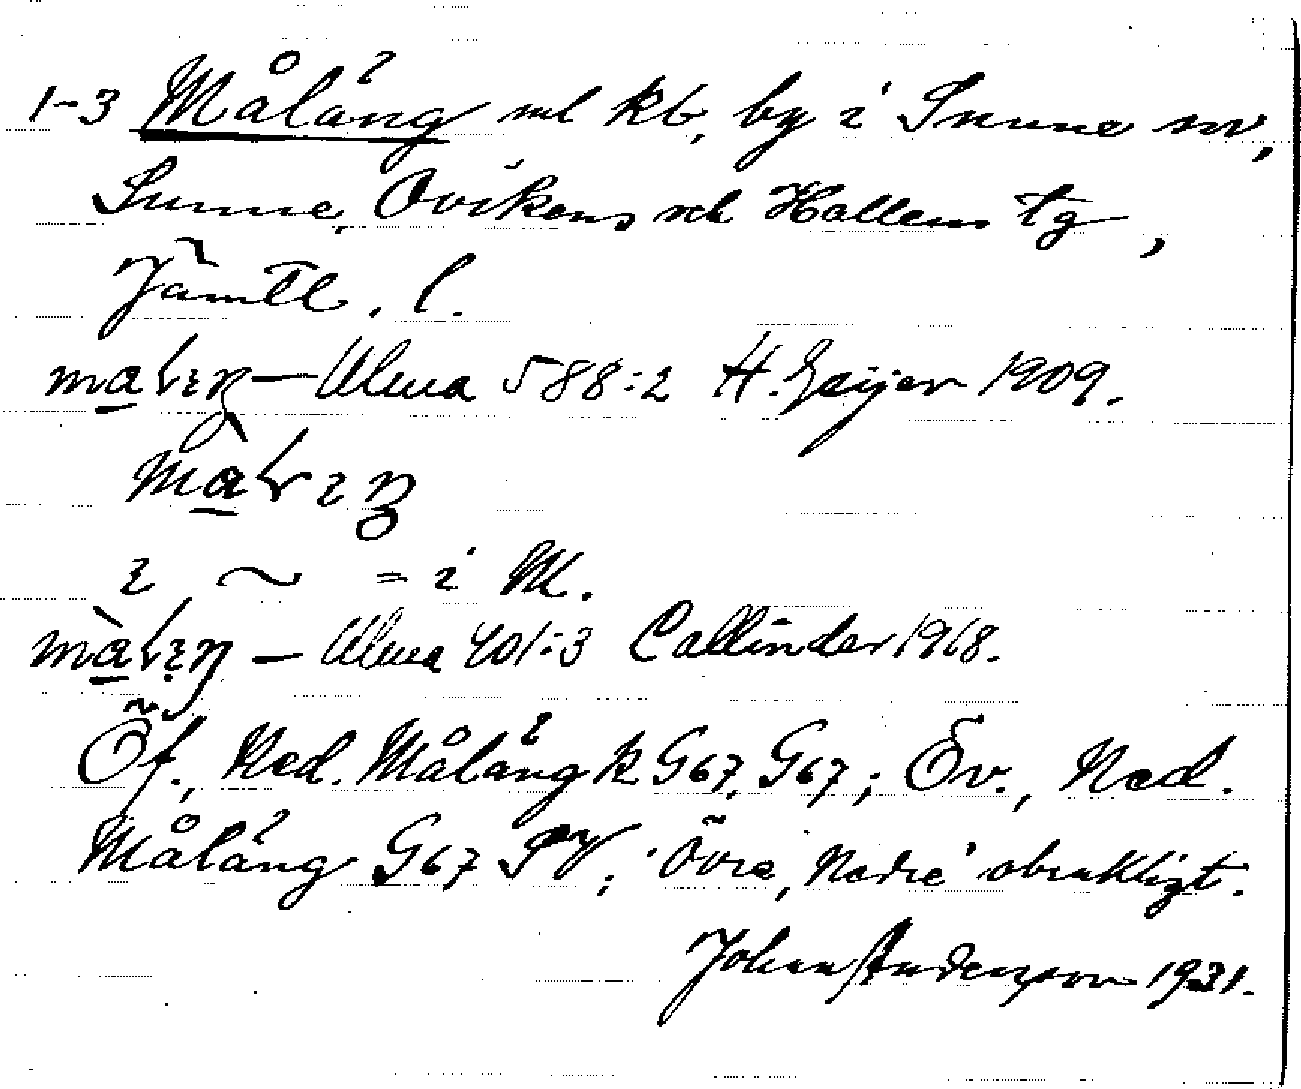 1-3 Målång ml kb, by i Sunne sn,
Sunne, Ovikens och Hallens tg,
Jämtl. l.
— Ulma 588:2 H. Geijer 1909.
~ = i M.
— Ulma 401:3 Callinder 1968.
Öf., Ned. Målång k G67, G67; Öv., Ned.
Målång G67 PV; 'Övre, Nedre' obrukligt.
Johan Anderzon 1931.